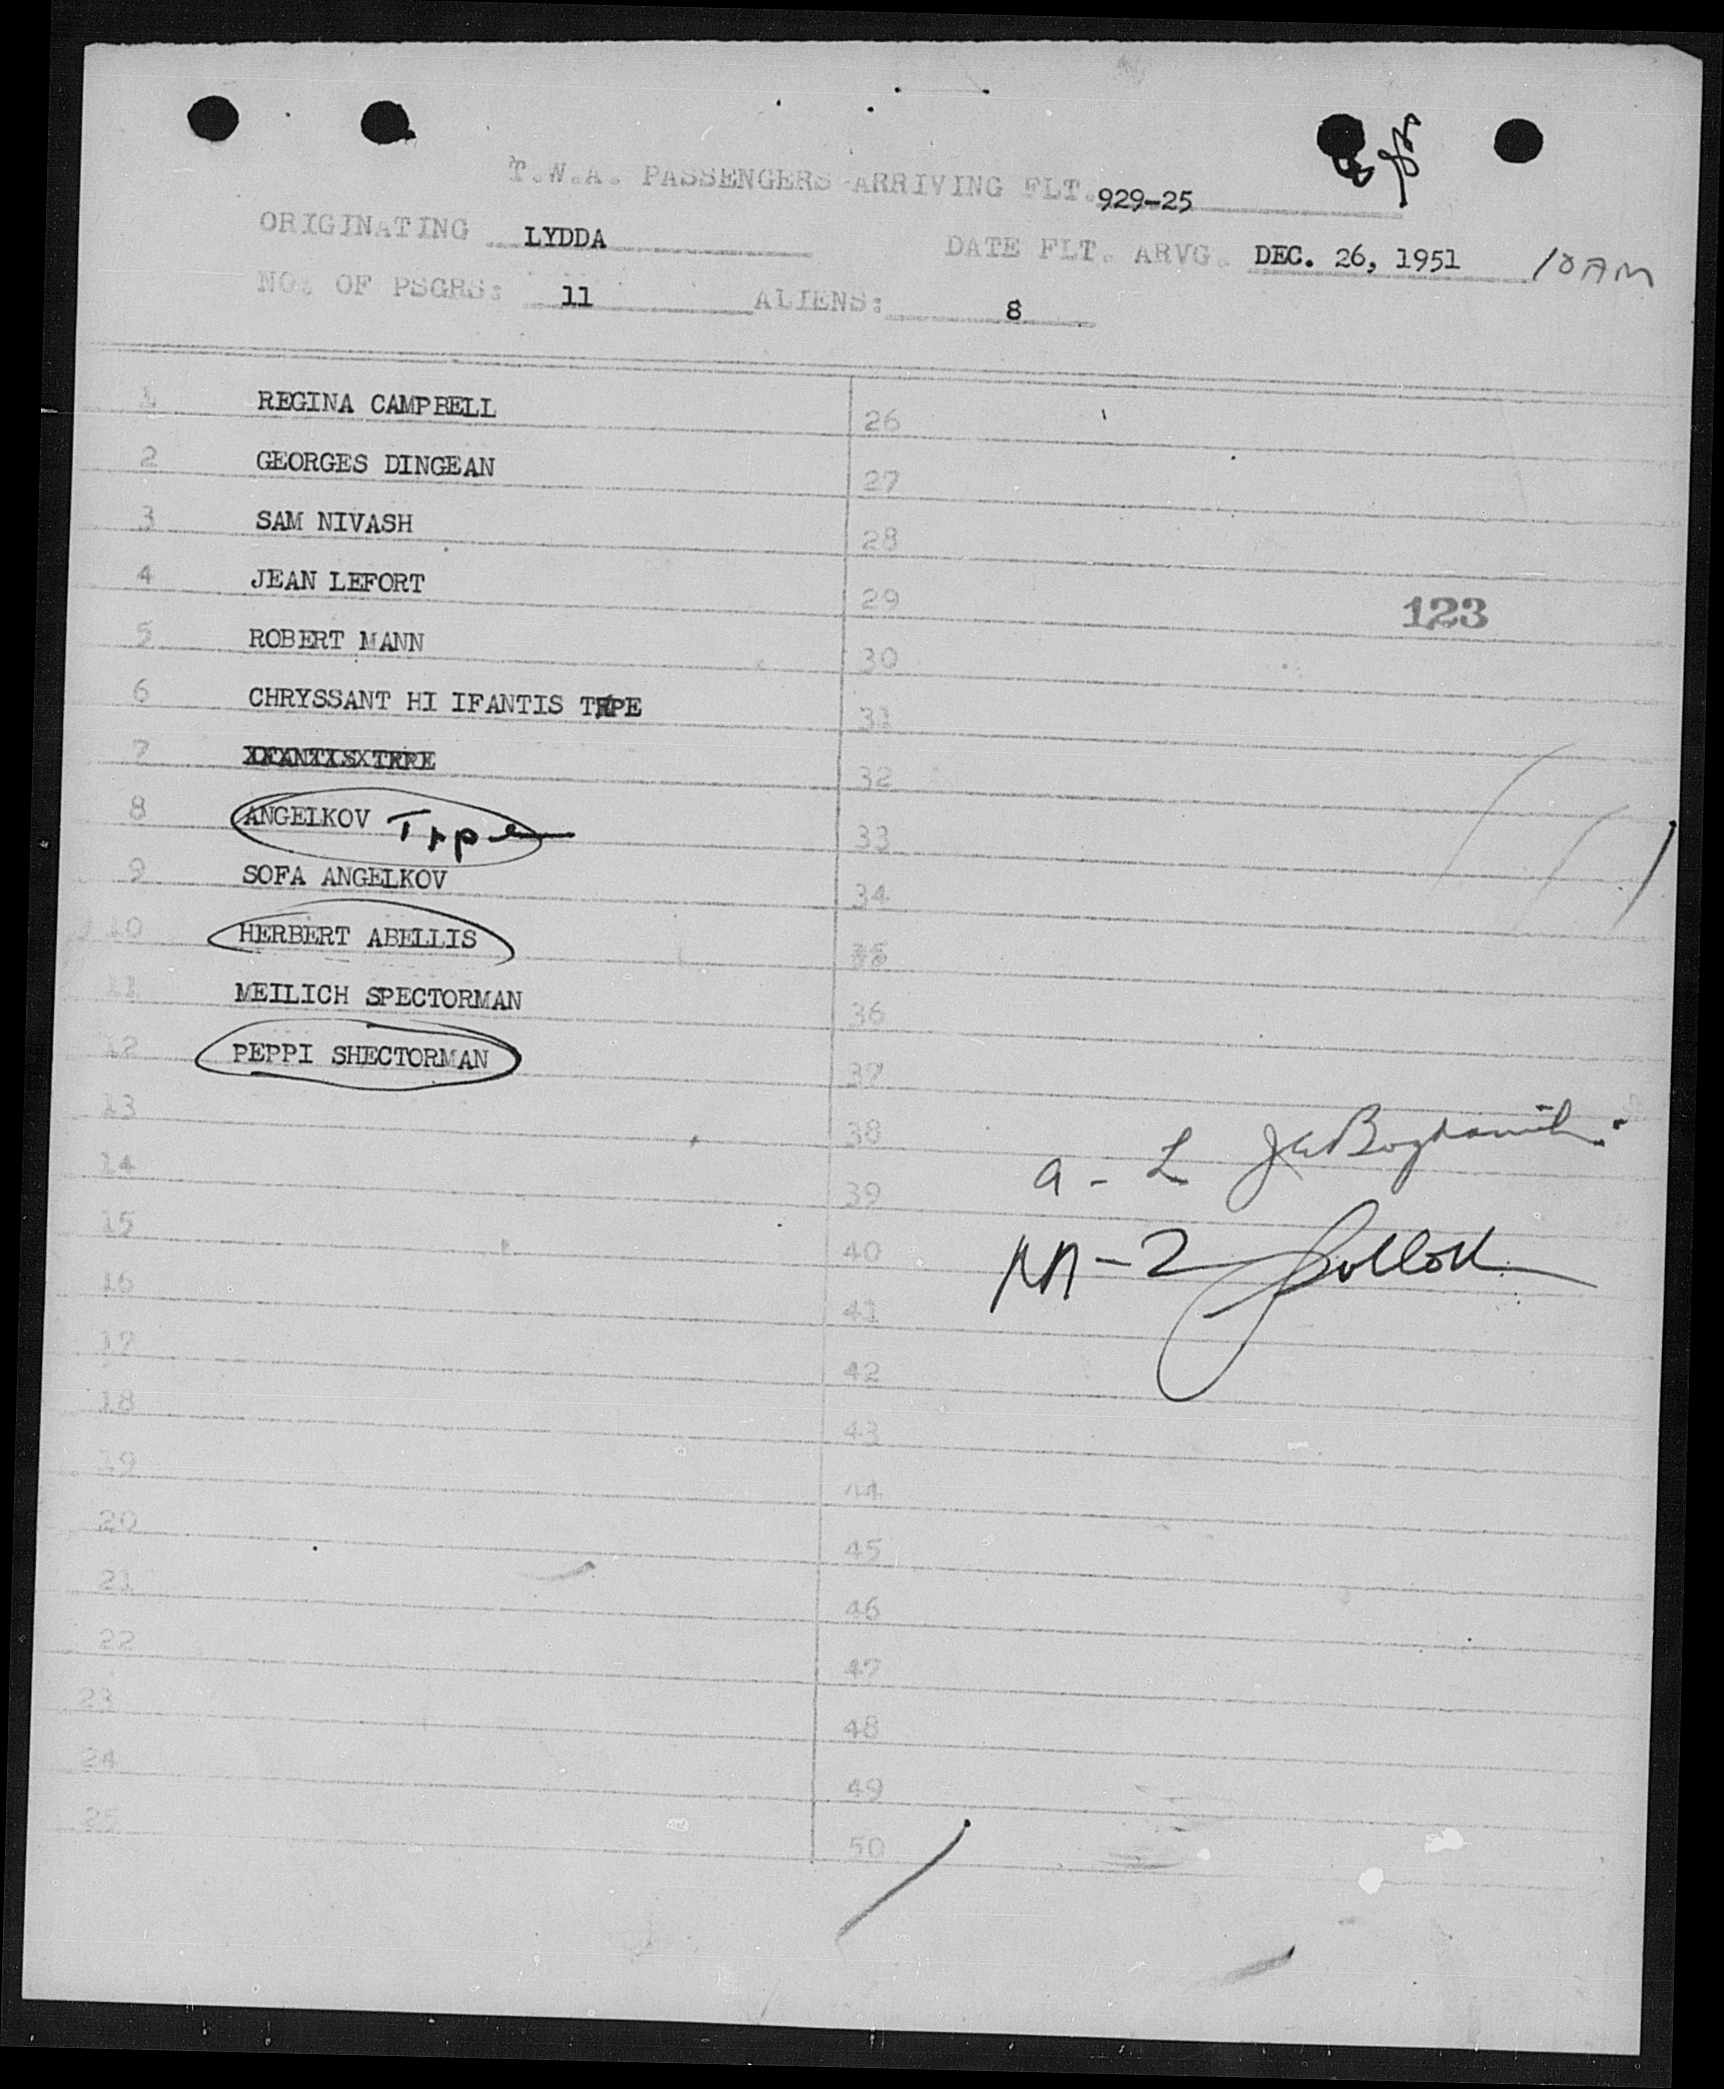 T.W.A. PASSENGERS ARRIVING FLT. 929-25
ORIGINATING LYDDA DATE FLT. ARVG. DEC. 26, 1951 10 AM
NO. OF PSGRS: 11 ALIENS: 8
1 REGINA CAMPBELL 26
2 GEORGES DINGEAN 27
3 SAM NIVASH 28
4 JEAN LEFORT 29
123
5 ROBERT MANN 30
6 CHRYSSANT HI IFANTIS TRPE 31
7 IFANTIS TRPE 32
8 ANGELKOV Trpe 33
9 SOFA ANGELKOV 34
10 HERBERT ABELLIS 35
11 MEILICH SPECTORMAN 36
12 PEPPI SHECTORMAN 37
13 38
a - L
14 39
15 40
- 2
16 41
17 42
18 43
19 44
20 45
21 46
22 47
23 48
24 49
25 50